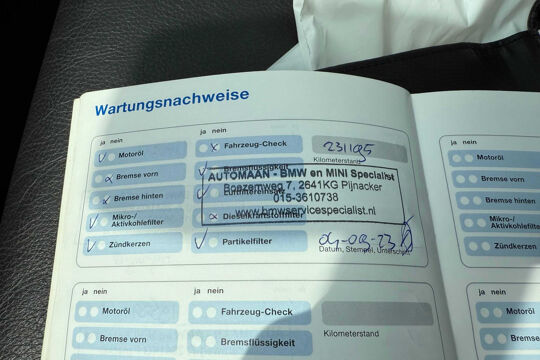 Wartungsnachweise
ja nein
Motoröl
Bremse vorn
Bremse hinten
Mikro-/
Aktivkohlefilter
Zündkerzen
ja nein
Fahrzeug-Check
Bremsflüssigkeit
Luftfiltereinsatz
Dieselkraftstofffilter
Partikelfilter
231195
Kilometerstand
AUTOMAAN - BMW en MINI Specialist
Boezemweg 7, 2641KG Pijnacker
015-3610738
www.bmwservicespecialist.nl
Datum, Stempel, Unterschrift
ja nein
Motoröl
Bremse vorn
ja nein
Fahrzeug-Check
Bremsflüssigkeit
Kilometerstand
ja nein
Motoröl
Bremse vorn
Bremse hinten
Mikro-/
Aktivkohlefilter
Zündkerzen
ja nein
Motoröl
Bremse vorn